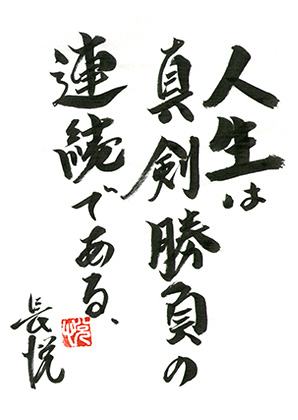 人生は
真剣勝負の
連続である、
長悦
悦